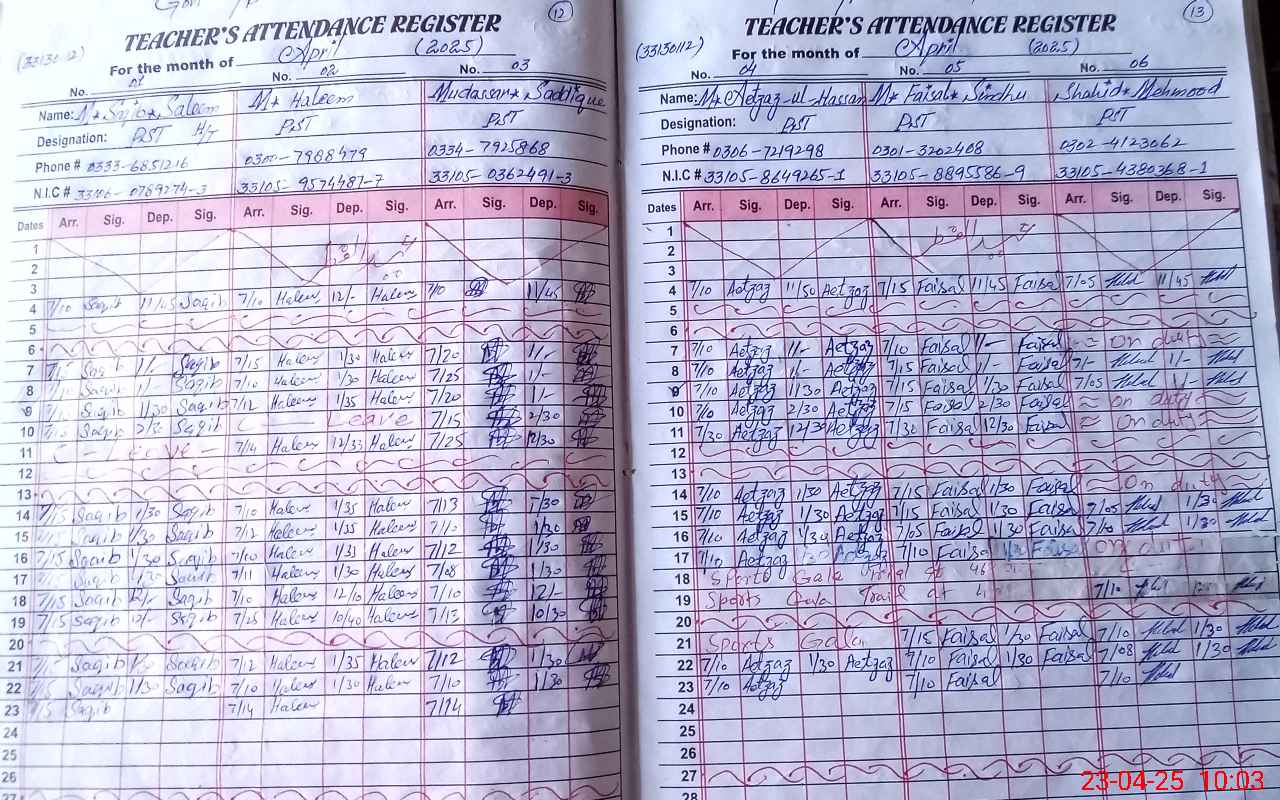 12
TEACHER'S ATTENDANCE REGISTER
(33130112)
For the month of April (2025)
No. 01 No. 02 No. 03
Name: M* Haleem Mudassar* Saddique
Designation: PST H/T PST PST
Phone # 0333-6851216 0300-7988479 0334-7925868
N.I.C # 33106-0769274-3 33105-9574487-7 33105-0362491-3
Dates Arr. Sig. Dep. Sig. Arr. Sig. Dep. Sig. Arr. Sig. Dep. Sig.
1
2
3
4 7/10 Saqib 11/45 Saqib 7/10 Haleem 12/- Haleem 7/10 11/45
5
6
7 7/15 Saqib 1/- Saqib 7/15 Haleem 1/30 Haleem 7/20 1/-
8 Saqib 1/- Saqib 7/10 Haleem 1/30 Haleem 7/25 1/-
9 Saqib 1/30 Saqib 7/12 Haleem 1/35 Haleem 7/20 1/-
10 7/10 Saqib 2/30 Saqib Leave 7/15 2/30
11 Leave 7/14 Haleem 12/33 Haleem 7/25 12/30
12
13
14 7/15 Saqib 1/30 Saqib 7/10 Haleem 1/35 Haleem 7/13 1/30
15 7/15 Saqib 1/30 Saqib 7/12 Haleem 1/35 Haleem 7/10 1/30
16 7/15 Saqib 1/30 Saqib 7/10 Haleem 1/35 Haleem 7/12 1/30
17 7/15 Saqib 1/30 Saqib 7/11 Haleem 1/30 Haleem 7/08 1/30
18 7/15 Saqib 12/- Saqib 7/10 Haleem 12/10 Haleem 7/10 12/-
19 7/15 Saqib Saqib 7/25 Haleem 10/40 Haleem 7/13 10/30
20
21 7/15 Saqib 1/30 Saqib 7/12 Haleem 1/35 Haleem 7/12 1/30
22 7/15 Saqib 1/30 Saqib 7/10 Haleem 1/30 Haleem 7/10 1/30
23 7/15 Saqib 7/14 Haleem 7/14
24
25
26
27
13
TEACHER'S ATTENDANCE REGISTER
(33130112)
For the month of April (2025)
No. 04 No. 05 No. 06
Name: M* Aetzaz-ul-Hassan M* Faisal* Sindhu Shahid* Mehmood
Designation: PST PST PST
Phone # 0306-7219298 0301-3202408 0302-4123062
N.I.C # 33105-8649265-1 33105-8895586-9 33105-4380368-1
Dates Arr. Sig. Dep. Sig. Arr. Sig. Dep. Sig. Arr. Sig. Dep. Sig.
1
2
3
4 7/10 Aetzaz 11/50 Aetzaz 7/15 Faisal 11/45 Faisal 7/05 11/45
5
6
7 7/10 Aetzaz 1/- Aetzaz 7/10 Faisal 1/- Faisal On duty
8 7/10 Aetzaz 1/- Aetzaz 7/15 Faisal 1/- Faisal 7/- 1/-
9 7/10 Aetzaz 1/30 Aetzaz 7/15 Faisal 1/30 Faisal 7/05 1/-
10 7/10 Aetzaz 2/30 Aetzaz 7/15 Faisal 2/30 Faisal On duty
11 7/30 Aetzaz 12/30 Aetzaz 7/30 Faisal 12/30 Faisal On duty
12
13
14 7/10 Aetzaz 1/30 Aetzaz 7/15 Faisal 1/30 Faisal On duty
15 7/10 Aetzaz 1/30 Aetzaz 7/15 Faisal 1/30 Faisal 7/05 1/30
16 7/10 Aetzaz 1/30 Aetzaz 7/05 Faisal 1/30 Faisal 7/10 1/30
17 7/10 Aetzaz Aetzaz 7/10 Faisal Faisal On duty
18 Sports Gala Trial at
19 Sports Gala Trail at 7/10
20
21 Sports Gala 7/15 Faisal 1/30 Faisal 7/10 1/30
22 7/10 Aetzaz 1/30 Aetzaz 7/10 Faisal 1/30 Faisal 7/08 1/30
23 7/10 Aetzaz 7/10 Faisal 7/10
24
25
26
27
28
23-04-25 10:03